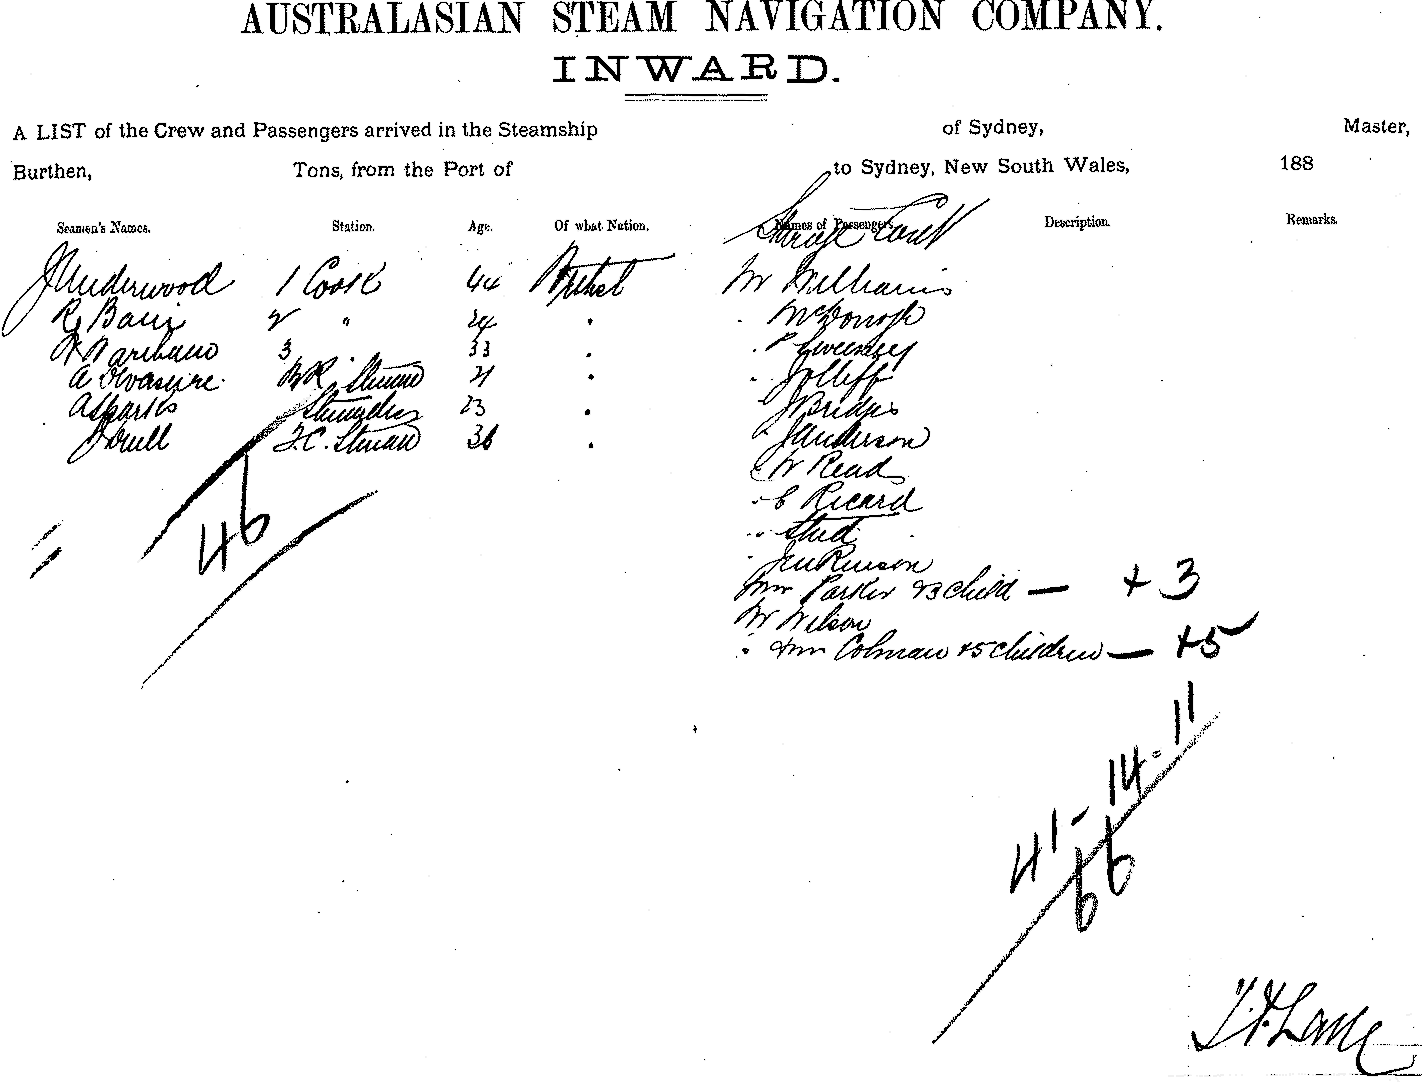 AUSTRALASIAN STEAM NAVIGATION COMPANY.
INWARD.
A LIST of the Crew and Passengers arrived in the Steamship of Sydney, Master,
Burthen, Tons, from the Port of to Sydney, New South Wales, 188
Seamen's Names. Station. Age. Of what Nation. Names of Passengers. Description. Remarks.
Steerage Cont
J Underwood 1 Cook 44 British Mr Williams
2 " 24 McDonogh
3 33 Sweeney
A Steward 21 Jolliff
A Sparks Stewardess 23 J Bridges
Steward 36 J Anderson
W Read
C Ricard
46
Jenkinson
Mrs Parker & 3 child — + 3
Mr Wilson
Mrs Colman + 5 children — + 5
41 - 14 - 11
66
T. Lane